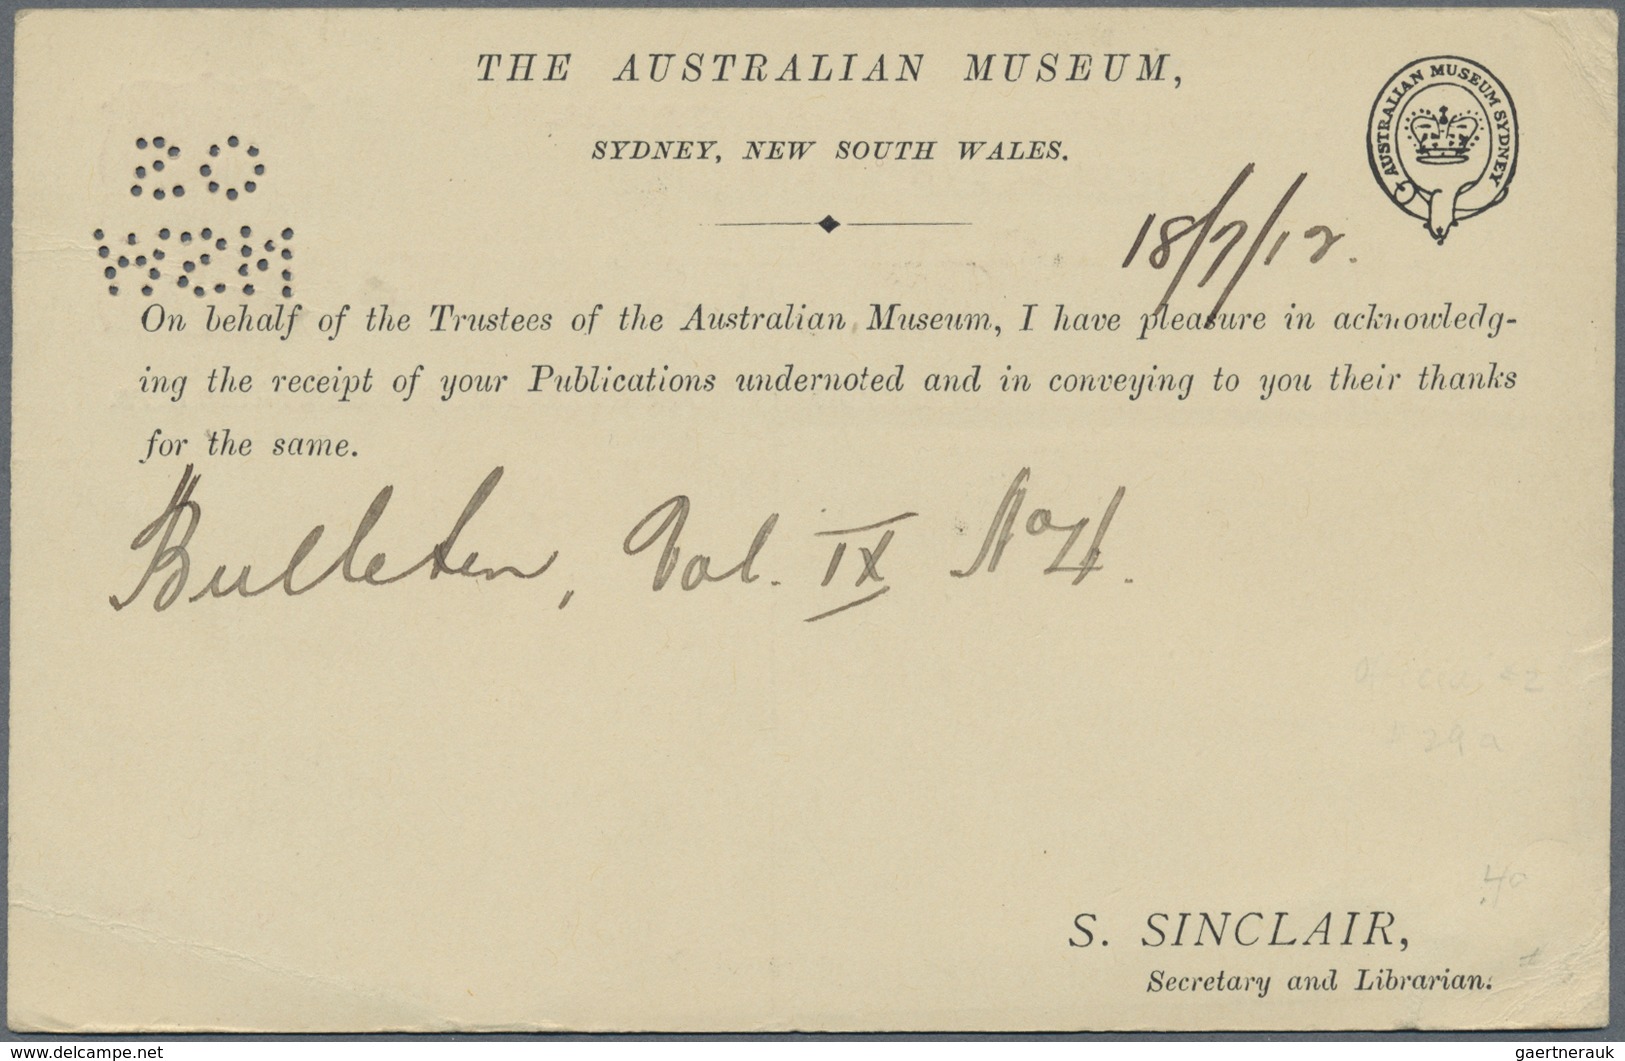 THE AUSTRALIAN MUSEUM,
AUSTRALIAN MUSEUM SYDNEY
SYDNEY, NEW SOUTH WALES.
18/7/12.
On behalf of the Trustees of the Australian Museum, I have pleasure in acknowledg-
ing the receipt of your Publications undernoted and in conveying to you their thanks
for the same.
Bulletin, Vol. IX No 4.
29a
40
S. SINCLAIR,
Secretary and Librarian.
www.delcampe.net
gaertnerauk